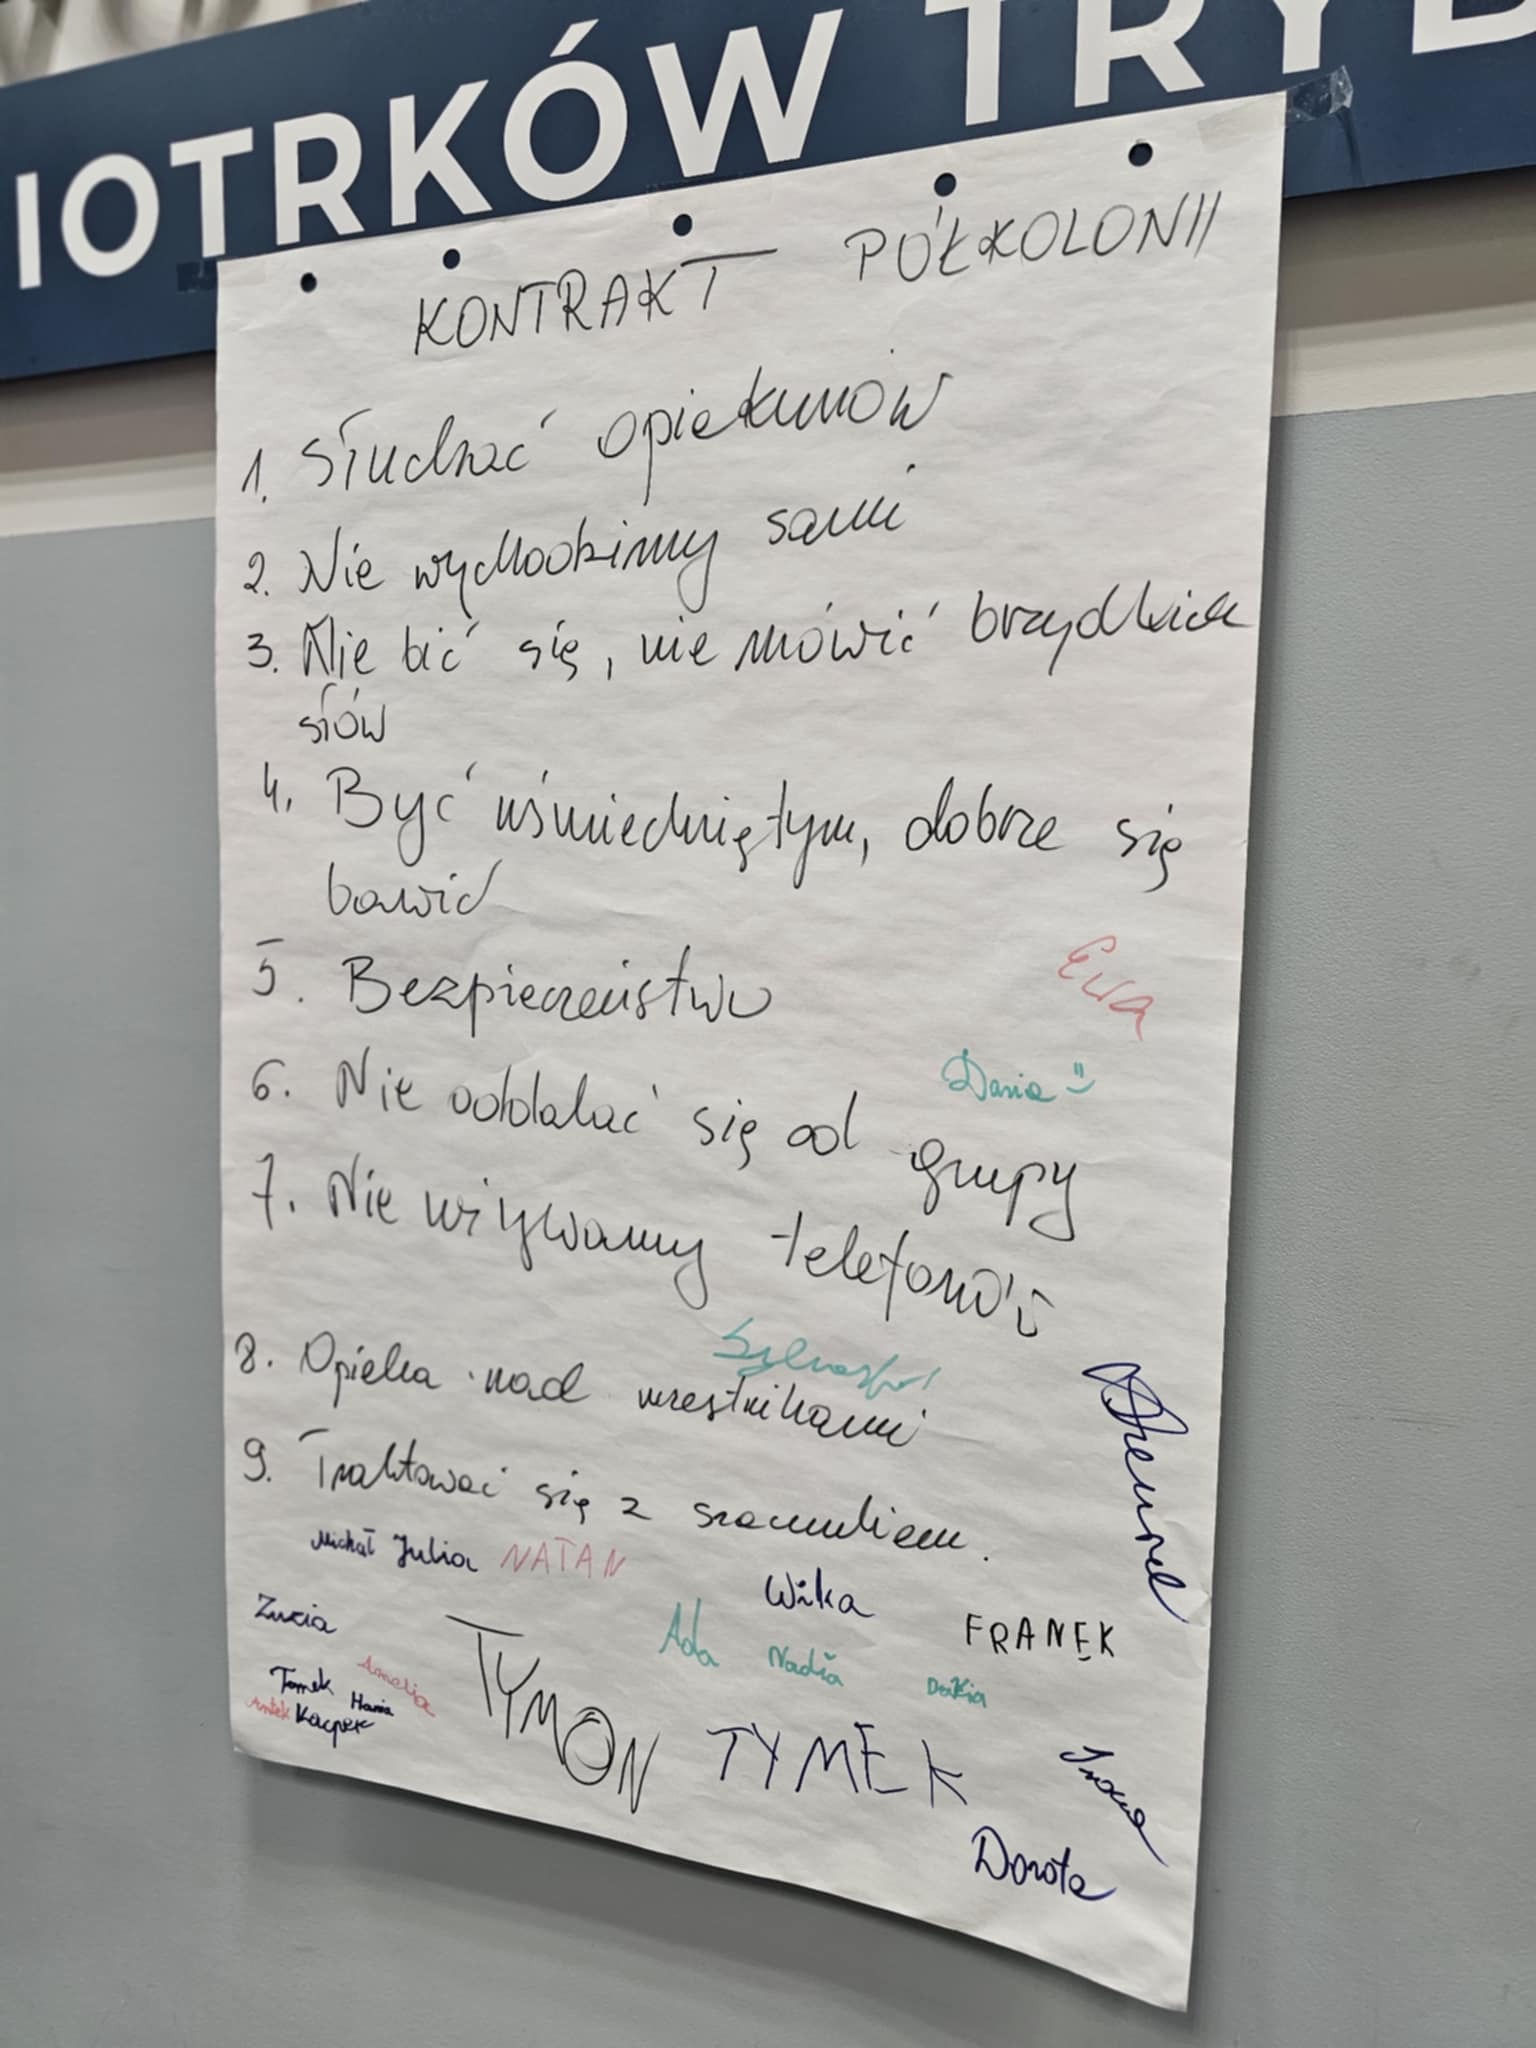 IOTRKÓW TRYB
KONTRAKT PÓŁKOLONII
1. Słuchać opiekunów
2. Nie wychodzimy sami
3. Nie bić się, nie mówić brzydkich
słów
4. Być uśmiechniętym, dobrze się
bawić
5. Bezpieczeństwo
Ewa
Daria
6. Nie oddalać się od grupy
7. Nie używamy telefonów
8. Opieka nad rówieśnikami
9. Traktować się z szacunkiem.
Michał Julia NATAN
Wika
FRANEK
Zuzia
Ada Nadia
Amelia
Tomek Hania
Antek Kacper
TYMON
TYMEK
Dorota